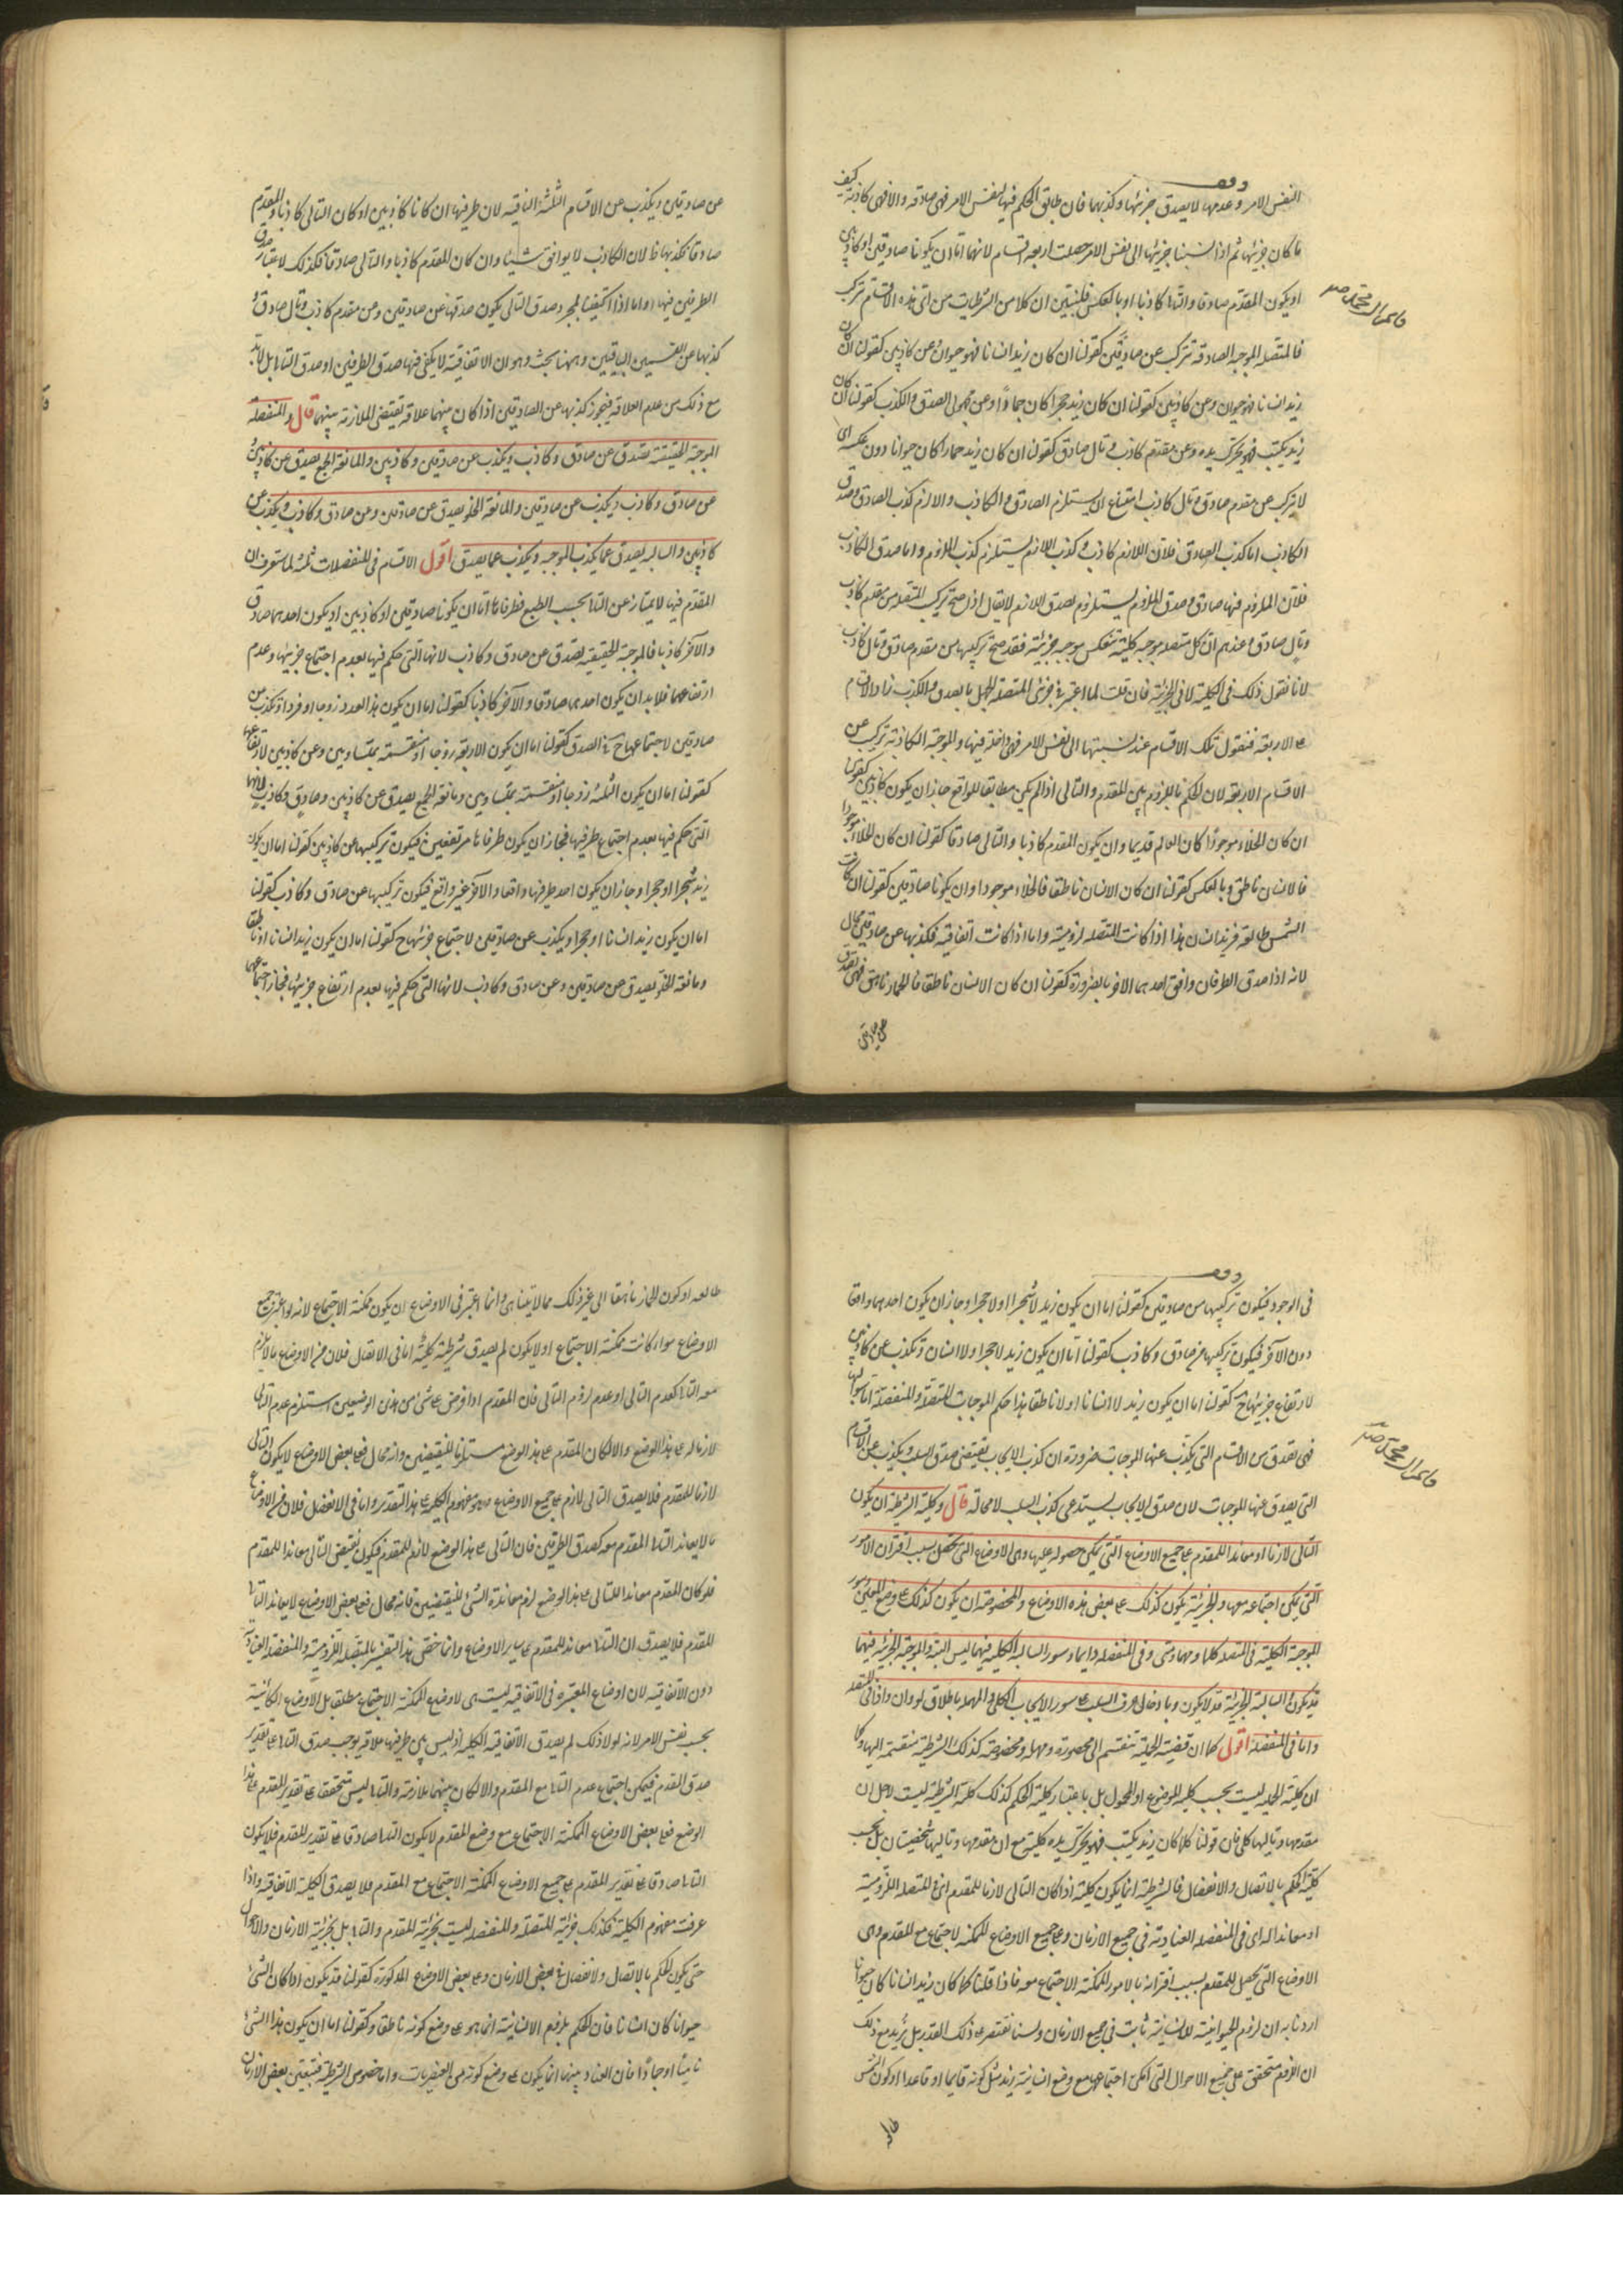 لنفس الامر وعدمها لا يصدق جزئيها وكذبهما فان طابق الحكم فيها لنفس الامر فهي صادقه والا فهي كاذبة كيف
ما كان جزئيها ثم اذا نسبنا جزئيها الى نفس الامر حصلت اربعه اقسام لانهما اما ان يكونا صادقين او كاذبين
او يكون المقدم صادقا والتالى كاذبا او بالعكس فلنبين ان كلا من الشرطيات من اى هذه الاقسام تركب
فالمتصله الموجبه الصادقه تتركب عن صادقين كقولنا ان كان زيد انسانا فهو حيوان وعن كاذبين كقولنا ان كان
زيد انسانا فهو حيوان وعن كاذبين كقولنا ان كان زيد حجرا كان جمادا وعن مجهولى الصدق والكذب كقولنا ان كان
زيد يكتب فهو يحرك يده وعن مقدم كاذب وتال صادق كقولنا ان كان زيد حمارا كان حيوانا دون عكسه اى
لا يتركب من مقدم صادق وتال كاذب امتناع ان يستلزم الصادق الكاذب والا لزم كذب الصادق وصدق
الكاذب اما كذب الصادق فلان اللازم كاذب وكذب اللازم يستلزم كذب الملزوم واما صدق الكاذب
فلان الملزوم فيها صادق وصدق الملزوم يستلزم صدق اللازم لا يقال اذا صح تركيب المتصله من مقدم كاذب
وتال صادق وعندهم ان كل متصله موجبه كلية تنعكس موجبه جزئية فقد صح تركيبها من مقدم صادق وتال كاذب
لانا نقول ذلك فى الكلية لا فى الجزئية فان قلت لما اعتبر فى جزئى المتصله الجهل بالصدق والكذب زاد الاقسام
على الاربعة فنقول تلك الاقسام عند نسبتها الى نفس الامر فهي داخلة فيها والموجبه الكاذبة تتركب عن
الاقسام الاربعة لان الحكم باللزوم بين المقدم والتالى اذا لم يكن مطابقا للواقع جاز ان يكون كاذبين كقولنا
ان كان الخلاء موجودا كان العالم قديما وان يكون المقدم كاذبا والتالى صادقا كقولنا ان كان الخلاء موجودا
فالانسان ناطق وبالعكس كقولنا ان كان الانسان ناطقا فالخلاء موجودا وان يكونا صادقين كقولنا ان كانت
الشمس طالعة فزيد انسان هذا اذا كانت المتصله لزومية واما اذا كانت اتفاقية فكذبها عن صادقين محال
لانه اذا صدق الطرفان وافق احدهما الاخر بالضرورة كقولنا ان كان الانسان ناطقا فالحمار ناهق فهي تصدق
عن صادقين
عن صادقين ويكذب عن الاقسام الثلثة الباقيه لان طرفيها ان كانا كاذبين او كان التالى كاذبا والمقدم
صادقا فكذبهما ظ لان الكاذب لا يوافق شيئا وان كان المقدم كاذبا والتالى صادقا فكذلك لاعتبار صدق
الطرفين فيها واما اذا اكتفينا بمجرد صدق التالى يكون صدقها عن صادقين وعن مقدم كاذب وتال صادق
كذبها عن القسمين الباقيين وههنا بحث وهو ان الاتفاقية لا يكفى فيها صدق الطرفين او صدق التالى بل لابد
مع ذلك من عدم العلاقه فيجوز كذبها عن الصادقين اذا كان بينهما علاقة تقتضى الملازمة بينهما قال والمنفصلة
الموجبة الحقيقية تصدق عن صادق وكاذب ويكذب عن صادقين وكاذبين والمانعة الجمع يصدق عن كاذبين
عن صادق وكاذب ويكذب عن صادقين والمانعة الخلو يصدق عن صادقين وعن صادق وكاذب ويكذب عن
كاذبين والسالبه يصدق عما يكذب الموجبه ويكذب عما يصدق اقول الاقسام فى المنفصلات ثلثة لما ستعرف ان
المقدم فيها لا يمتاز عن التالى بحسب الطبع فطرفاها اما ان يكونا صادقين او كاذبين او يكون احدهما صادق
والآخر كاذبا فالموجبة الحقيقية يصدق عن صادق وكاذب لانها التى حكم فيها بعدم اجتماع جزئيها وعدم
ارتفاعهما فلابد ان يكون احدهما صادقا والآخر كاذبا كقولنا اما ان يكون هذا العدد زوجا او فردا وتكذب عن
صادقين لاجتماعهما ح فى الصدق كقولنا اما ان يكون الاربعة زوجا او منقسمة بمتساويين وعن كاذبين لارتفاعهما
كقولنا اما ان يكون الثلثة زوجا او منقسمة بمتساويين ومانعة الجمع يصدق عن كاذبين وصادق وكاذب لانها
التى حكم فيها بعدم اجتماع طرفيها فجاز ان يكون طرفاها مرتفعين فيكون تركيبها من كاذبين كقولنا اما ان يكون
زيد شجرا او حجرا وجاز ان يكون احد طرفيها واقعا والآخر غير واقع فيكون تركيبها عن صادق وكاذب كقولنا
اما ان يكون زيد انسانا او حجرا ويكذب عن صادقين لاجتماع جزئيها ح كقولنا اما ان يكون زيد انسانا او ناطقا
ومانعة الخلو يصدق عن صادقين وعن صادق وكاذب لانها التى حكم فيها بعدم ارتفاع جزئيها فجاز اجتماعهما
فى الوجود فيكون تركيبها من صادقين كقولنا اما ان يكون زيد لا شجرا او لا حجرا وجاز ان يكون احدهما واقعا
دون الآخر فيكون تركيبها من صادق وكاذب كقولنا اما ان يكون زيد لا حجرا ولا انسان وتكذب عن كاذبين
لارتفاع جزئيها ح كقولنا اما ان يكون زيد لا انسانا او لا ناطقا هذا حكم الموجبات المتصلة والمنفصلة اما سوالبها
فهي تصدق عن الاقسام التى يكذب عنها الموجبات ضرورة ان كذب الايجاب يقتضى صدق السلب ويكذب عن الاقسام
التى يصدق عنها الموجبات لان صدق الايجاب يستدعى كذب السلب لا محالة قال وكلية الشرطية ان يكون
التالى لازما او معاندا للمقدم على جميع الاوضاع التى يمكن حصوله عليها وهى الاوضاع التى تحصل بسبب اقتران الامور
التى يمكن اجتماعه معها والجزئية يكون كذلك على بعض هذه الاوضاع والمخصوصة ان يكون كذلك على وضع المعين وسور
الموجبة الكلية فى المتصله كلما ومهما ومتى وفى المنفصله دايما وسور السالبه الكلية فيهما ليس البتة والموجبة الجزئيه فيهما
قد يكون والسالبة الجزئية قد لا يكون وبادخال حرف السلب على سور الايجاب الكلى والمهملة باطلاق لو وان واذا فى المتصله
واما فى المنفصله اقول كما ان قضية الحملية تنقسم الى محصورة ومهمله ومخصوصة كذلك الشرطية منقسمة اليها وكما
ان كلية الحمليه ليست بحسب كلية الموضوع او المحمول بل باعتبار كلية الحكم كذلك كلية الشرطية ليست لاجل ان
مقدمها وتاليها كلى فان قولنا كلما كان زيد يكتب فهو يحرك يده كلية مع ان مقدمها وتاليها شخصيتان بل بحسب
كلية الحكم بالاتصال والانفصال فالشرطية انما يكون كلية اذا كان التالى لازما للمقدم اى فى المتصله اللزومية
او معاندا له اى فى المنفصله العنادية فى جميع الازمان وعلى جميع الاوضاع الممكنه الاجتماع مع المقدم وهى
الاوضاع التى يحصل للمقدم بسبب اقترانه بالامور الممكنة الاجتماع معه فاذا قلنا كلما كان زيد انسانا كان حيوانا
اردنا به ان لزوم الحيوانية للانسانية ثابت فى جميع الازمان ولسنا نقتصر على ذلك القدر بل نريد مع ذلك
ان اللزوم متحقق على جميع الاحوال التى امكن اجتماعها مع وضع انسانية زيد مثل كونه قايما او قاعدا او كون الشمس
طالعه
طالعه او كون الحمار ناهقا الى غير ذلك مما لا يتناهى وانما اعتبر فى الاوضاع ان يكون ممكنة الاجتماع لانه لو اعتبر جميع
الاوضاع سواء كانت ممكنة الاجتماع او لا يكون لم يصدق شرطية كلية اما فى الاتصال فلان من الاوضاع ما لا يلزم
معه التالى كعدم التالى او عدم لزوم التالى فان المقدم اذا فرض على شئ من هذين الوضعين استلزم عدم التالى
لازما له على هذا الوضع والا لكان المقدم على هذا الوضع مستلزما للنقيضين وانه محال فعلى بعض الاوضاع لا يكون التالى
لازما للمقدم فلا يصدق التالى لازم على جميع الاوضاع وهو مفهوم الكلية على هذا التقدير واما فى الانفصال فلان من الاوضاع
ما لا يعاند التالى المقدم معه كصدق الطرفين فان التالى على هذا الوضع لازم للمقدم فيكون نقيض التالى معاندا للمقدم
فلو كان المقدم معاندا للتالى على هذا الوضع لزم معاندة الشئ للنقيضين فانه محال فعلى بعض الاوضاع لا يعاند التالى
للمقدم فلا يصدق ان التالى معاند للمقدم على ساير الاوضاع وانما خص هذا التفسير بالمتصله اللزومية والمنفصله العنادية
دون الاتفاقية لان اوضاع المعتبره فى الاتفاقيه ليست هى الاوضاع الممكنة الاجتماع مطلقا بل الاوضاع الكائنية
بحسب نفس الامر لانه لولا ذلك لم يصدق الاتفاقية الكلية اذ ليس بين طرفيها علاقه يوجب صدق التالى على تقدير
صدق المقدم فيمكن اجتماع عدم التالى مع المقدم والا لكان بينهما ملازمة والتالى ليس متحققا على تقدير المقدم على هذا
الوضع فعلى بعض الاوضاع الممكنة الاجتماع مع وضع المقدم لا يكون التالى صادقا على تقدير المقدم فلا يكون
التالى صادقا على تقدير المقدم على جميع الاوضاع الممكنة الاجتماع مع المقدم فلا يصدق الكلية الاتفاقية واذا
عرفت مفهوم الكلية فكذلك جزئية المتصلة والمنفصله ليست بجزئية المقدم والتالى بل بجزئية الازمان والاحوال
حتى يكون الحكم بالاتصال والانفصال فى بعض الازمان وعلى بعض الاوضاع المذكورة كقولنا قد يكون اذا كان الشئ
حيوانا كان انسانا فان الحكم بلزوم الانسانية انما هو على وضع كونه ناطقا وكقولنا اما ان يكون هذا الشئ
ناميا او جمادا فان العناد بينهما انما يكون على وضع كونه من العنصريات واما خصوص الشرطية فبتعيين بعض الازمان